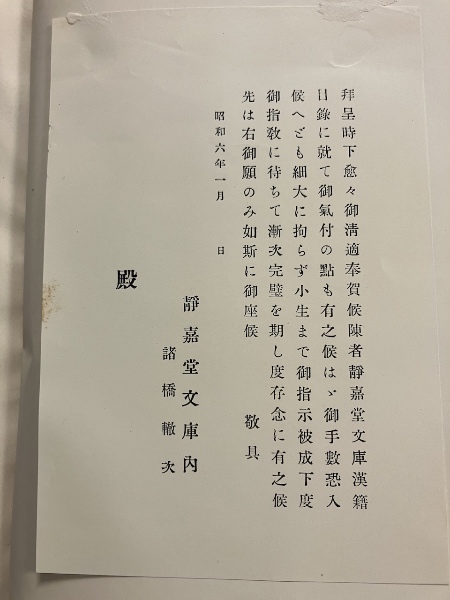 拜呈時下愈々御淸適奉賀候陳者靜嘉堂文庫漢籍
目錄に就て御氣付の點も有之候はゞ御手數恐入
候へども細大に拘らず小生まで御指示被成下度
御指敎に待ちて漸次完璧を期し度存念に有之候
先は右御願のみ如斯に御座候　敬具
昭和六年一月　日
靜嘉堂文庫內
諸橋轍次
殿